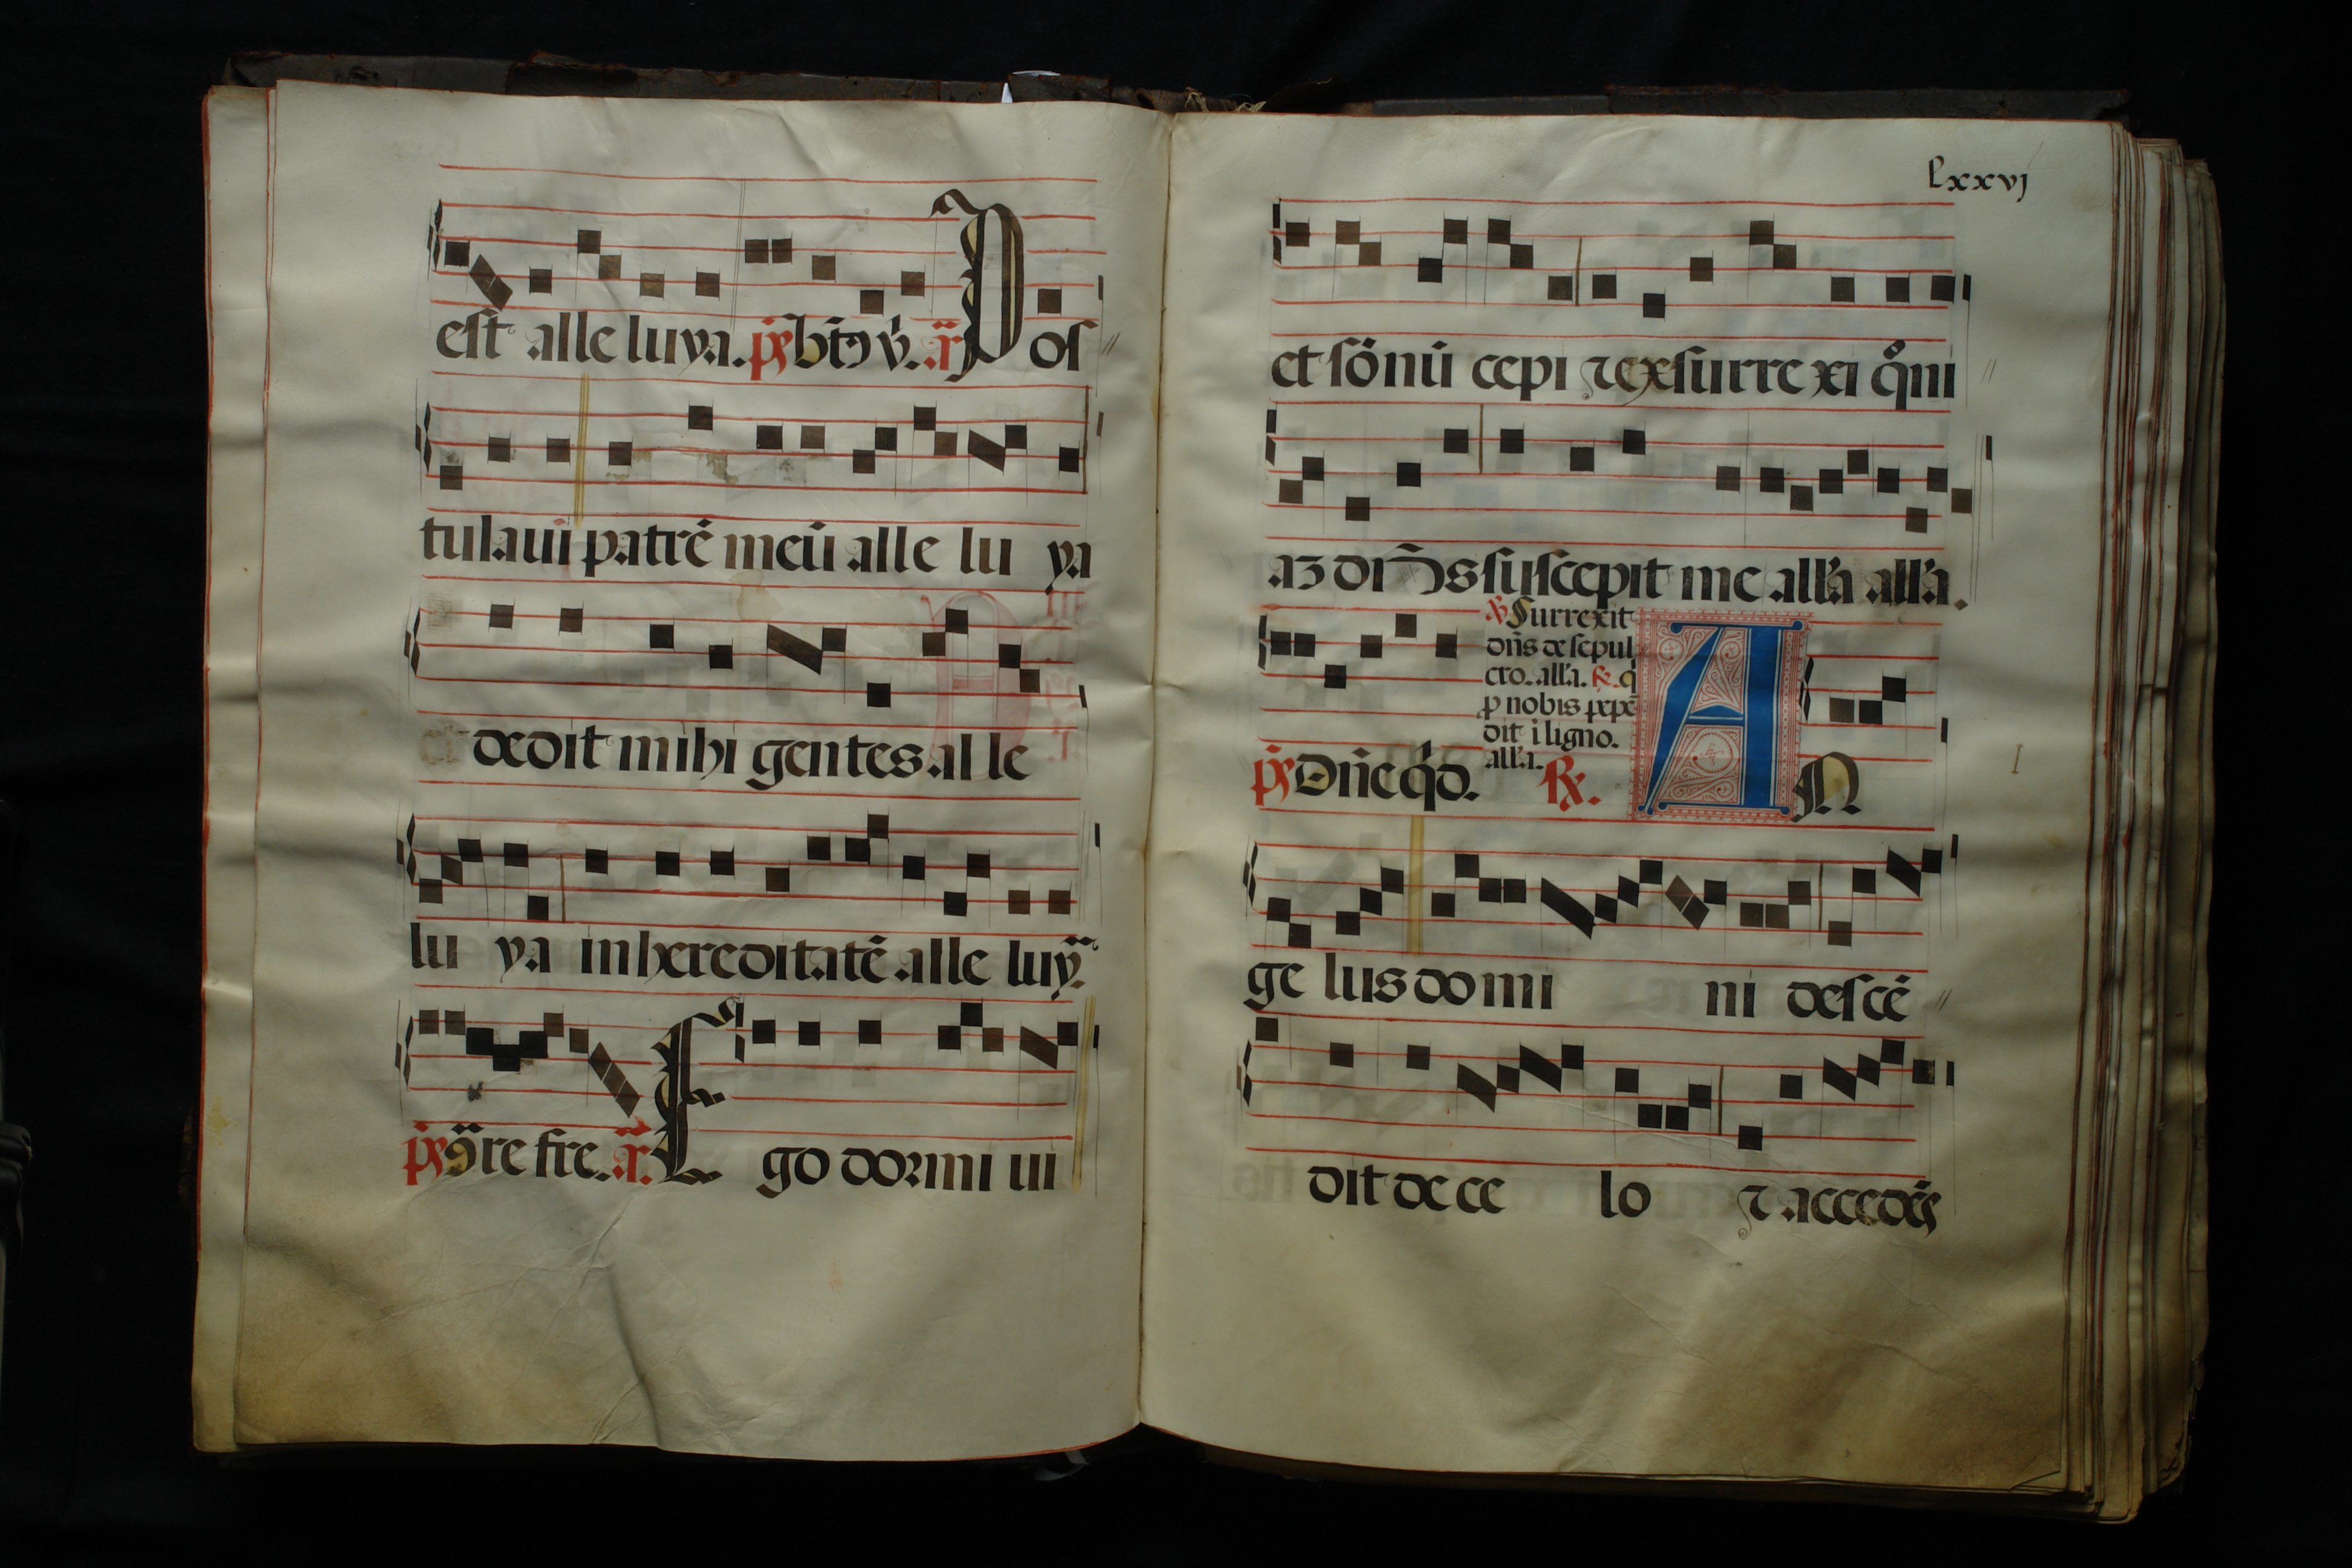 est alle luya. ps btũs v. ãr Pos
tulaui patrẽ meũ alle lu ya
dedit mihi gentes al le
lu ya in hereditatẽ alle luỹ.
ps q̃re fre. ãr. Ego dormi ui
Lxxvj
et sõnũ cepi ⁊ exsurre xi qͦni
aꝫ dñs suscepit me all'a all'a.
ps Dñe qͥd.
℣ Surrexit
dñs de sepul
cro. all'a. ℟. q
ꝓ nobis pepẽ
dit i ligno.
all'a. ℟.
AN
ge lus domi ni descẽ
dit de ce lo ⁊ accedẽs